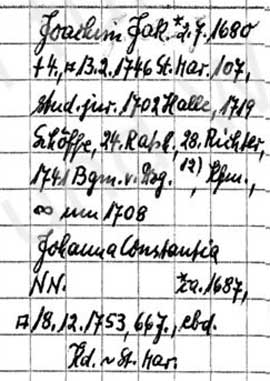 Joachim Jak. *2.7.1680
†4., ⚰13.2.1746 St. Mar. 107,
stud. jur. 1702 Halle, 1719
Schöffe, 24. Ratsh., 28. Richter,
1741 Bgm. v. Dzg. 12), Kfm.,
∞ um 1708
Johanna Constantia
NN. *ca. 1687,
⚰18.12.1753, 66 J., ebd.
Kd. ~ St. Mar.